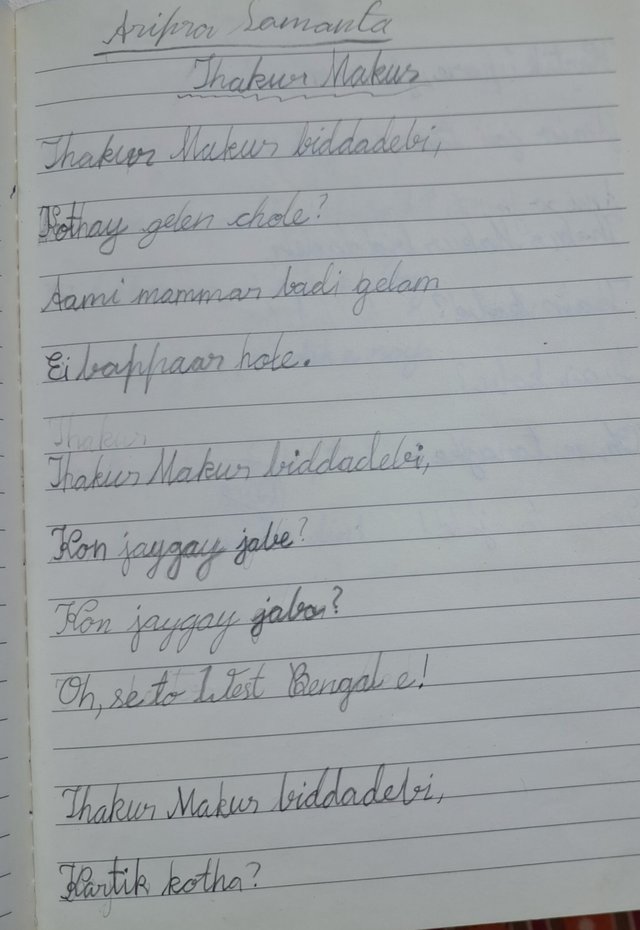 Aripra Samanta
Thakur Makur
Thakur Makur biddadebi,
Kothay gelen chole?
Aami mammar badi gelam
Ei bappaar hole.
Thakur
Thakur Makur biddadebi,
Kon jaygay jabe?
Kon jaygay jabo?
Oh, se to West Bengal e!
Thakur Makur biddadebi,
Kartik kotha?